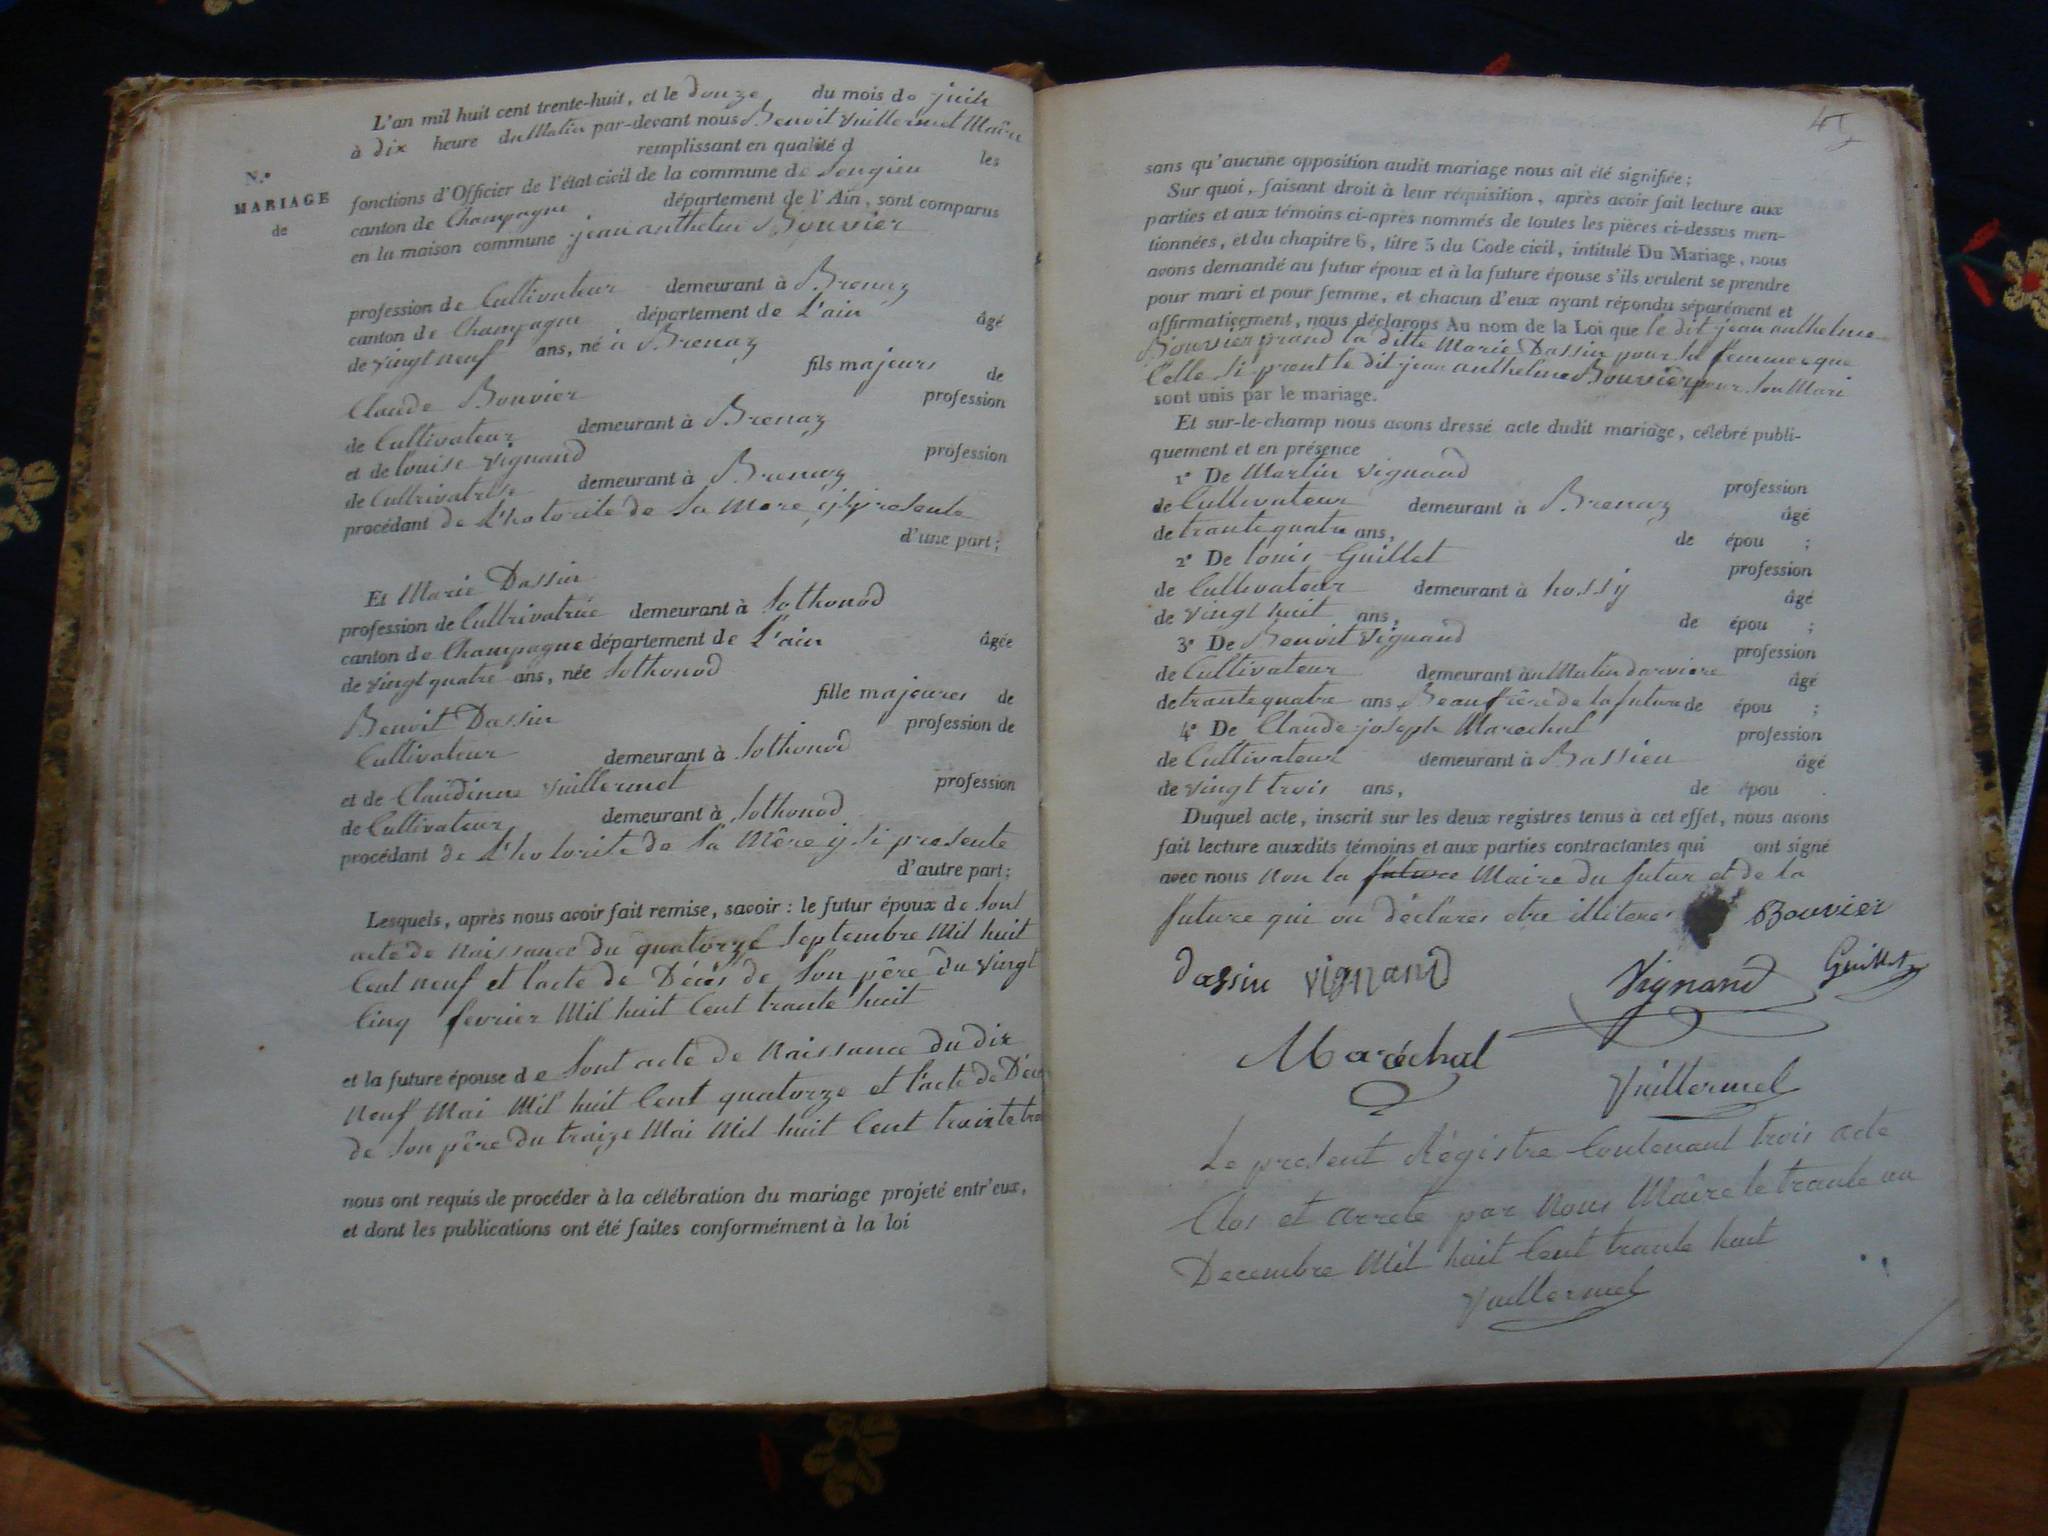 L'an mil huit cent trente-huit, et le douze du mois de juin
à dix heure du Matin par-devant nous Benoit Vuillermet Maire
remplissant en qualité d les
N.º
MARIAGE
de
fonctions d'Officier de l'état civil de la commune de Songieu
canton de Champagne département de l'Ain, sont comparus
en la maison commune jean anthelme Bouvier
profession de Cultivateur demeurant à Brenaz
canton de Champagne département de L'ain âgé
de vingt neuf ans, né à Brenaz
fils majeurs de
Claude Bouvier profession
de Cultivateur demeurant à Brenaz
et de louise Vignand profession
de Cultivatrise demeurant à Brenaz
procédant de L'hotorité de Sa Mere presente
d'une part;
Et Marie Dassin
profession de Cultrivatrise demeurant à Sothonod
canton de Champagne département de L'ain âgée
de vingt quatre ans, née Sothonod
fille majeures de
Benoit Dassin profession de
Cultivateur demeurant à Sothonod
et de Claudinne Vuillermet profession
de Cultivateur demeurant à Sothonod
procédant de L'hotorite de Sa Mêre y si presente
d'autre part;
Lesquels, après nous avoir fait remise, savoir: le futur époux de Sont
acte de Naissance du quatorze Septembre Mil huit
Cent neuf et l'acte de Décès de Son pêre du vingt
Cinq fevrier Mil huit Cent trante huit
et la future épouse de Sont acte de Naissance du dix
Neuf Mai Mil huit Cent quatorze et l'acte de Décès
de Son pêre du traize Mai Mil huit Cent trante
nous ont requis de procéder à la célébration du mariage projeté entr'eux,
et dont les publications ont été faites conformément à la loi
45
sans qu'aucune opposition audit mariage nous ait été signifiée;
Sur quoi, faisant droit à leur réquisition, après avoir fait lecture aux
parties et aux témoins ci-après nommés de toutes les pièces ci-dessus men-
tionnées, et du chapitre 6, titre 5 du Code civil, intitulé Du Mariage, nous
avons demandé au futur époux et à la future épouse s'ils veulent se prendre
pour mari et pour femme, et chacun d'eux ayant répondu séparément et
affirmativement, nous déclarons Au nom de la Loi que le dit jean anthelme
Bouvier prand la ditte Marie Dassin pour Sa femme e que
Celle Si prent le dit jean anthelme Bouvier pour Son Mari
sont unis par le mariage.
Et sur-le-champ nous avons dressé acte dudit mariage, célébré publi-
quement et en présence
1º De Martin Vignand profession
de Cultivateur demeurant à Brenaz âgé
de trante quatre ans, de épou ;
2º De louis Guillet profession
de Cultivateur demeurant à hossy âgé
de vingt huit ans, de épou ;
3º De Benoit Vignand profession
de Cultivateur demeurant à âgé
de trante quatre ans Beaufrêre de la future de épou ;
4º De Claude joseph Marechal profession
de Cultivateur demeurant à Bassieu âgé
de vingt trois ans, de épou .
Duquel acte, inscrit sur les deux registres tenus à cet effet, nous avons
fait lecture auxdits témoins et aux parties contractantes qui ont signé
avec nous Non la future Maire du futur et de la
future qui on déclares etre illiteres Bouvier
Dassin Vignand Vignand Guillet
Maréchal
Vuillermet
Le present Régistre Contenant trois acte
Clos et arrete par Nous Maire le trante un
Decembre Mil huit Cent trante huit
Vuillermet